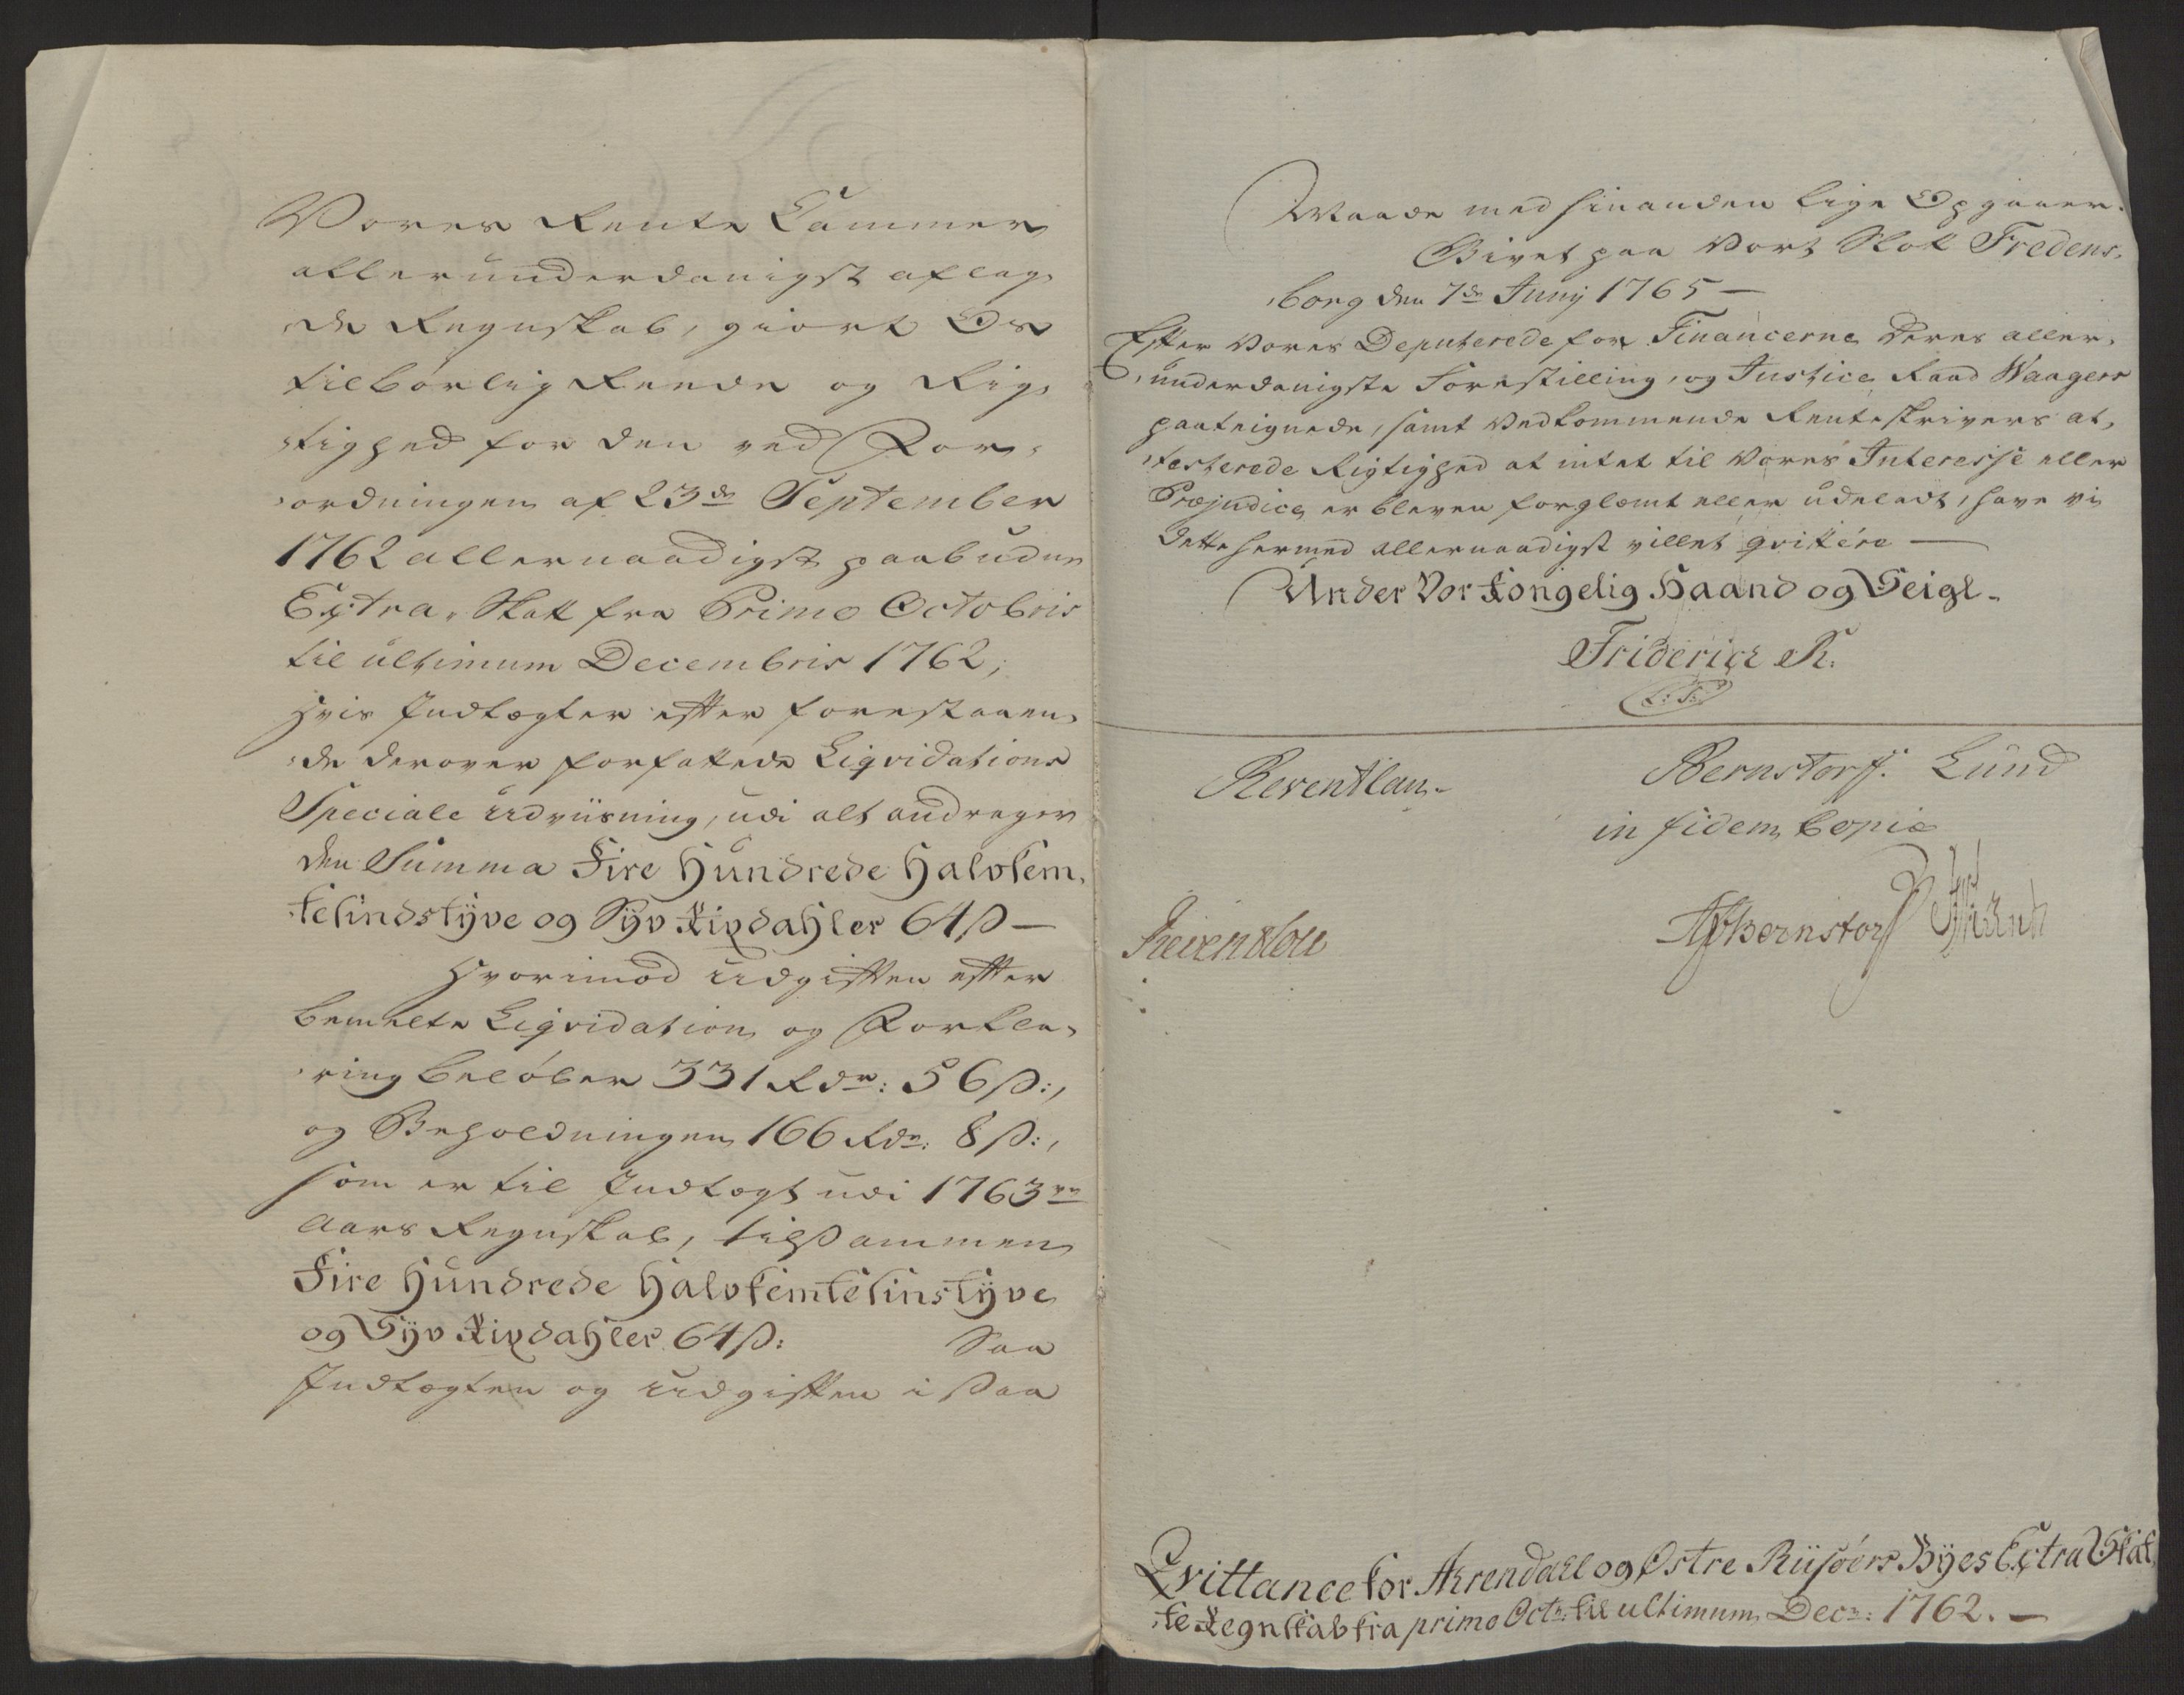 Vores Rente Cammer
allerunderdanigst aflag,
,de Regnskab, giort Os
tilbørlig Reede og Rig,
,tighed for den ved For,
,ordningen af 23de September
1762 allernaadigst paabudne
Extra, Skatt fra Primo Octobris
til ultimum Decembris 1762,
hvis Indtægter efter forestaaen,
,de derover forfattede Liqvidations
Speciale Udviisning, udi alt andrager
den Summa Fire Hundrede Halvfem,
,tesindstÿve og Sÿv Rixdahler 64 ß —
Hvorimod Udgiften efter
bemelte Liqvidation og Forkla,
,ring beløber 331 Rdr: 56 ß:,
og Beholdningen 166 Rdr: 8 ß:,
som er til Indtægt udi 1763de
Aars Regnskab, tilsammen
Fire Hundrede Halvfemtesinstÿve
og Sÿv Rixdahler 64 ß: Saa
Indtægten og Udgiften i saa
Maade med hinanden lige Opgaaer.
Givet paa Vort Slot Fredens,
,borg den 7de Junÿ 1765 —
Efter Vores Deputerede for Financerne deres aller,
,underdanigste Forestilling, og Justice Raad Waagers
paateignede, samt vedkommende Renteskrivers at,
,testerede Rigtighed at intet til Vores Interesse eller
Præjudice er bleven forglemt eller udeladt, have vi
dette hermed allernaadigst villet qvittére —
Under Vor Kongelig Haand og Seigl.
Friderich R.
L: S:
Reventlau. Bernstorff. Lund
in fidem Copiæ
Reventlou AGBernstorff
Qvittance for Arrendall og Østre Riisøers Bÿes Extra Skat,
,te Regnskab fra primo Octr: til ultimum Decr: 1762. —